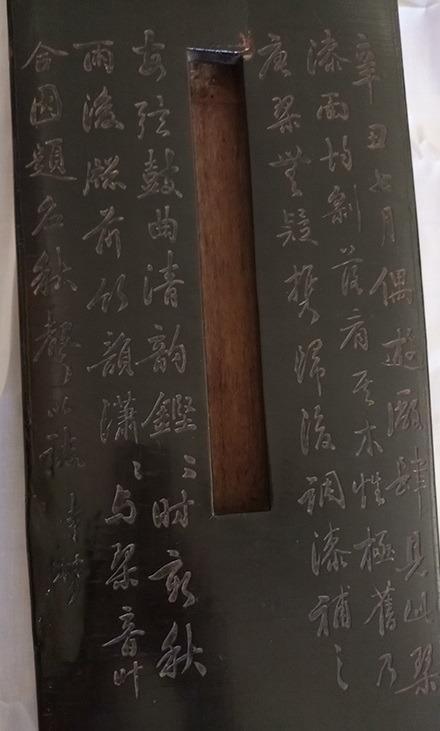 辛丑七月偶遊厰肆見此琴
漆面均剝落其木性極舊乃
唐琴無疑携歸後調漆補之
安弦鼓曲清韵鏗〻時新秋
雨後牕前竹韻瀟〻与琴音叶
合因題名秋聲以誌